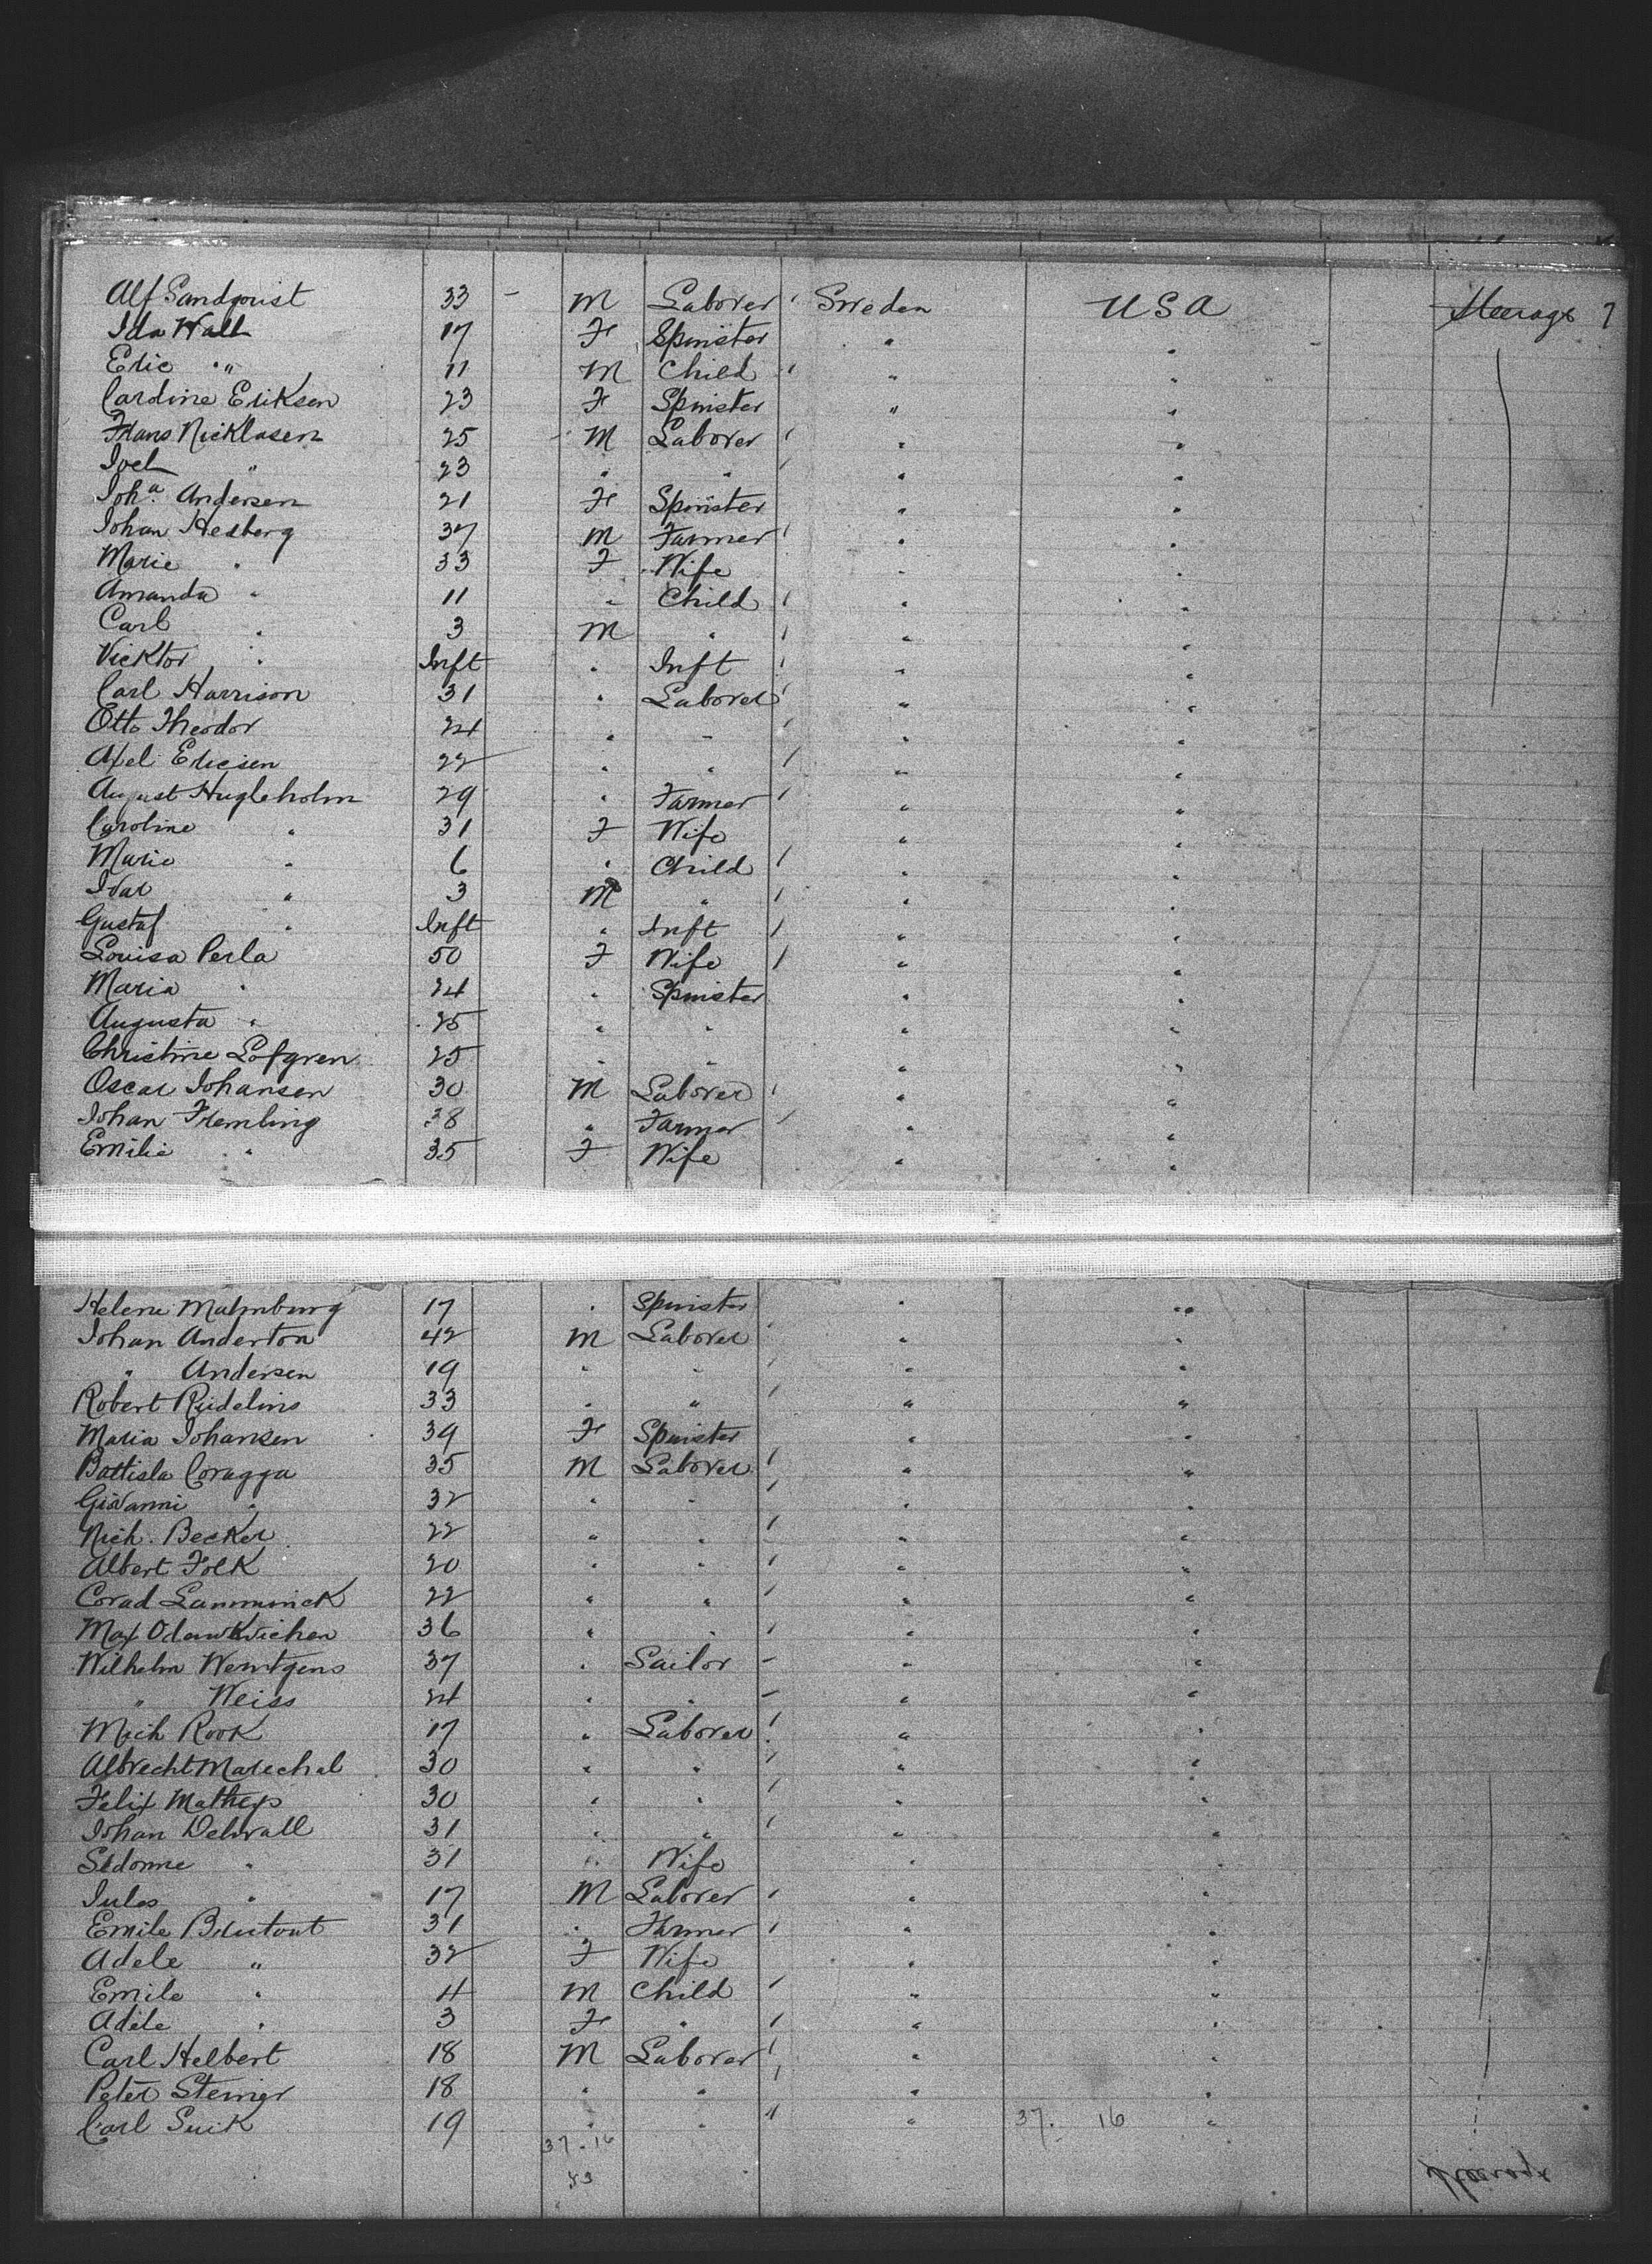 Alf Sandquist 33 - M Laborer ' Sweden USA Steerage 7
Ida Wall 17 F Spinster " "
Eric " 11 M Child ' " "
Cardine Eriksen 23 F Spinster " "
Frans Nicklasen 25 M Laborer ' " "
Joel " 23 " " ' " "
Joh.a Andersen 21 F Spinster " "
Johan Hedberg 37 M Farmer ' " "
Marie " 33 F Wife " "
Amanda " 11 " Child ' " "
Carl " 3 M " ' " "
Vicktor " Inft " Inft ' " "
Carl Harrison 31 " Laborer ' " "
Otto Theodor 24 " " ' " "
Axel Ericsen 22 " " / " "
August Hugleholm 29 " Farmer ' " "
Caroline " 31 F Wife " "
Marie " 6 " Child / " "
Ivar " 3 M " / " "
Gustaf " Inft " Inft / " "
Louisa Perla 50 F Wife / " "
Maria " 24 " Spinster " "
Augusta " 25 " " " "
Christine Lofgren 25 " " " "
Oscar Johansen 30 M Laborer ' " "
Johan Fremling 38 " Farmer / " "
Emilie " 35 F Wife " "
Helene Malmburg 17 " Spinster " "
Johan Anderton 42 M Laborer ' " "
" Andersen 19 " " ' " "
Robert Rudelins 33 " " ' " "
Maria Johansen 39 F Spinster " "
Battista Coragga 35 M Laborer ' " "
Giovanni " 32 " " ' " "
Nich. Becker 22 " " ' " "
Albert Folk 20 " " ' " "
Corad Lamminck 22 " " ' " "
Max 36 " " ' " "
Wilhelm Wentgens 37 " Sailor - " "
" Weiss 24 " " - " "
Mich Rook 17 " Laborer ' " "
Albrecht Marechal 30 " " ' " "
Felix Matheys 30 " " ' " "
Johan Delwall 31 " " ' " "
Sidonie " 31 " Wife " "
Jules " 17 M Laborer ' " "
Emile 31 " Farmer ' " "
Adele " 32 F Wife " "
Emile " 4 M Child ' " "
Adele " 3 F " ' " "
Carl Helbert 18 M Laborer ' " "
Peter Steinier 18 " " ' " "
Carl Suik 19 " " " " 37. 16 "
37. 16
53
Steerage